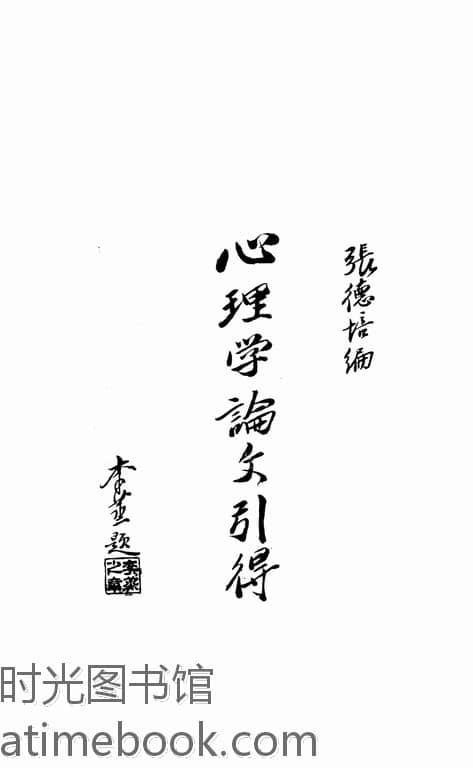 張德培編
心理学論文引得
李蒸題
李蒸之章
时光图书馆
atimebook.com